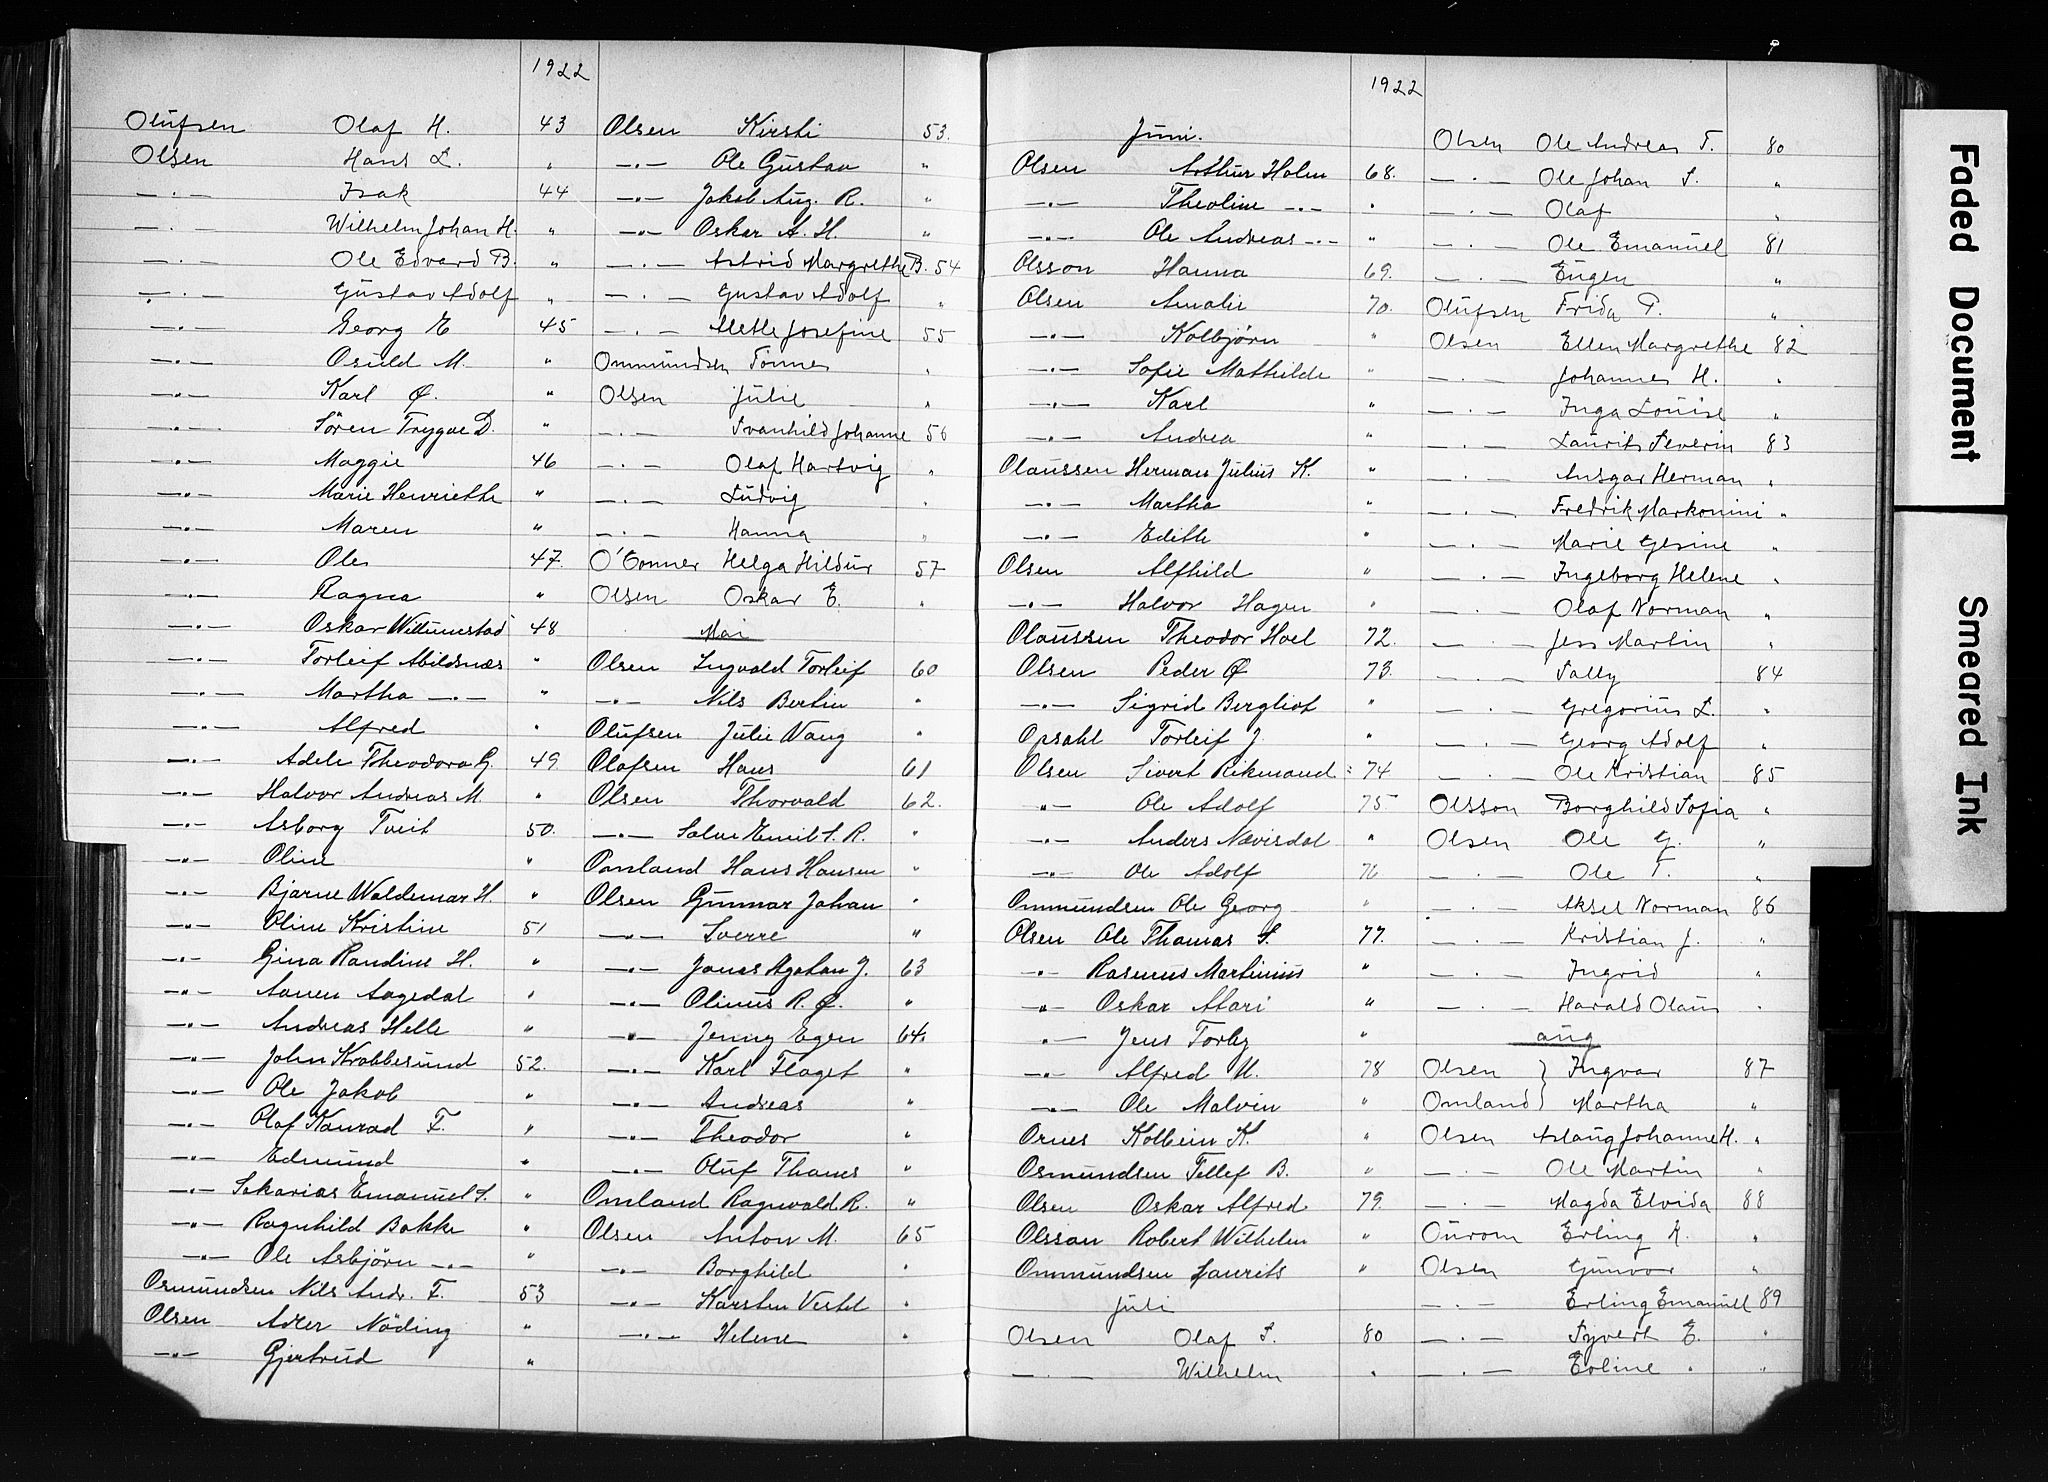 1922
Olufsen Olaf H. 43
Olsen Hans L. "
—"— Isak 44
—"— Wilhelm Johan H. "
—"— Ole Edvard B. "
—"— Gustav Adolf "
—"— Georg E 45
—"— Osuld M. "
—"— Karl Ø. "
—"— Sören Trygve D. "
—"— Maggie 46
—"— Marie Henriette "
—"— Maren "
—"— Ole 47.
—"— Ragna "
—"— Oskar Willumstad 48
—"— Torleif Abildsnæs "
—"— Martha —"— "
—"— Alfred "
—"— Adele Theodora G. 49
—"— Halvor Andreas M. "
—"— Asborg Tveit 50.
—"— Oline "
—"— Bjarne Waldemar H. "
—"— Oline Kristine 51
—"— Gina Randine H. "
—"— Aanen Aagedal "
—"— Andreas Helle "
—"— John Krabbesund 52.
—"— Ole Jakob "
—"— Olaf Konrad F. "
—"— Edmund "
—"— Sekarias Emanuel S. "
—"— Ragnhild Bakke "
—"— Ole Asbjörn —"— "
Osmundsen Nils Andr. F. 53
Olsen Adler Nöding "
—"— Gjertrud "
Olsen Kirsti 53.
—"— Ole Gustav "
—"— Jakob Aug. R. "
—"— Oskar A. H. "
—"— Astrid Margrethe B. 54
—"— Gustav Adolf "
—"— Mette Josefine 55
Ommundsen Tönnes "
Olsen Julie "
—"— Svanhild Johanne 56
—"— Olaf Hartvig "
—"— Ludvig "
—"— Hanna "
O'Conner Helga Hildur 57
Olsen Oskar E. "
Mai
Olsen Ingvald Torleif 60
—"— Nils Bertin "
Olufsen Julie Vang "
Olafsen Hans 61
Olsen Thorvald 62.
—"— Salve Emil S. R. "
Omland Hans Hansen "
Olsen Gunnar Johan "
—"— Sverre "
—"— Jonas Agaton J. 63
—"— Olinus R. Ø. "
—"— Jenny Egen 64.
—"— Karl Flaget "
—"— Andreas "
—"— Theodor "
—"— Oluf Thams "
Omland Ragnvald R. "
Olsen Anton M. 65
—"— Borghild "
—"— Karsten Vestel "
—"— Helene "
1922
Juni.
Olsen Arthur Holm 68.
—"— Theoline —"— "
—"— Ole Andreas —"— "
Olsson Hanna 69.
Olsen Amalie 70.
—"— Kolbjørn "
—"— Sofie Mathilde "
—"— Karl "
—"— Andrea "
Olaussen Herman Julius K. "
—"— Martha "
—"— Edith "
Olsen Alfhild "
—"— Halvor Hagen "
Olaussen Theodor Hoel 72.
Olsen Peder Ø 73.
—"— Sigrid Bergliot "
Opsahl Torleif J. "
Olsen Sivert Rikmand 74
—"— Ole Adolf 75
—"— Anders Nævisdal "
—"— Ole Adolf 76
Ommundsen Ole Georg "
Olsen Ole Thomas S. 77.
—"— Rasmus Martinius "
—"— Oskar Mari "
—"— Jens Torby "
—"— Alfred M. 78
—"— Ole Malvin "
Ornes Kolbein K. "
Osmundsen Tellef B. "
Olsen Oskar Alfred 79.
Olsson Robert Wilhelm "
Ommundsen Laurits "
Juli
Olsen Olaf S. 80
—"— Wilhelm "
Olsen Ole Andreas T. 80
—"— Ole Johan S. "
—"— Olaf "
—"— Ole Emanuel 81
—"— Eugen "
Olufsen Frida P. "
Olsen Ellen Margrethe 82
—"— Johannes H. "
—"— Inga Louise "
—"— Laurits Severin 83
—"— Ansgar Herman "
—"— Fredrik Markonini "
—"— Marie Gesine "
—"— Ingeborg Helene "
—"— Olaf Norman "
—"— Jess Martin "
—"— Sally 84
—"— Gregorius L. "
—"— Georg Adolf "
—"— Ole Kristian 85
Olsson Borghild Sofia "
Olsen Ole G. "
—"— Ole T. "
—"— Aksel Norman 86
—"— Kristian J. "
—"— Ingrid "
—"— Harald Olaus "
aug
Olsen } Ingvar 87
Omland } Martha "
Olsen Aslaug Johanne H. "
—"— Ole Martin "
—"— Magda Elvida 88
Ourom Erling K. "
Olsen Gunvor "
—"— Erling Emanuel 89
—"— Syvert E. "
—"— Evline "
Faded Document
Smeared Ink